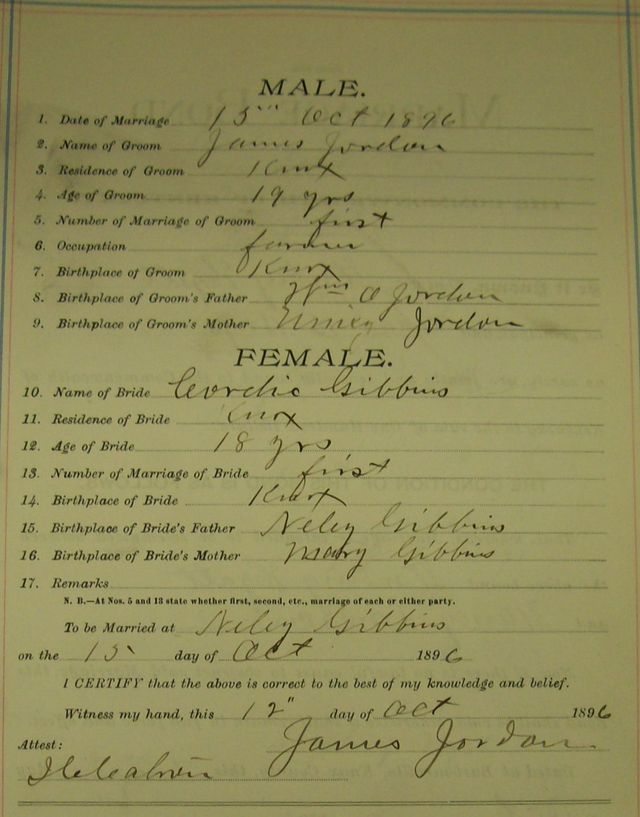 MALE.
1. Date of Marriage 15" Oct 1896
2. Name of Groom James Jordon
3. Residence of Groom Knox
4. Age of Groom 19 yrs
5. Number of Marriage of Groom first
6. Occupation farmer
7. Birthplace of Groom Knox
8. Birthplace of Groom's Father Wm O Jordon
9. Birthplace of Groom's Mother Jordon
FEMALE.
10. Name of Bride Cordie Gibbins
11. Residence of Bride Knox
12. Age of Bride 18 yrs
13. Number of Marriage of Bride first
14. Birthplace of Bride Knox
15. Birthplace of Bride's Father Neley Gibbins
16. Birthplace of Bride's Mother Mary Gibbins
17. Remarks
N. B.—At Nos. 5 and 13 state whether first, second, etc., marriage of each or either party.
To be Married at Neley Gibbins
on the 15 day of Oct 1896
I CERTIFY that the above is correct to the best of my knowledge and belief.
Witness my hand, this 12" day of Oct 1896
Attest: James Jordon